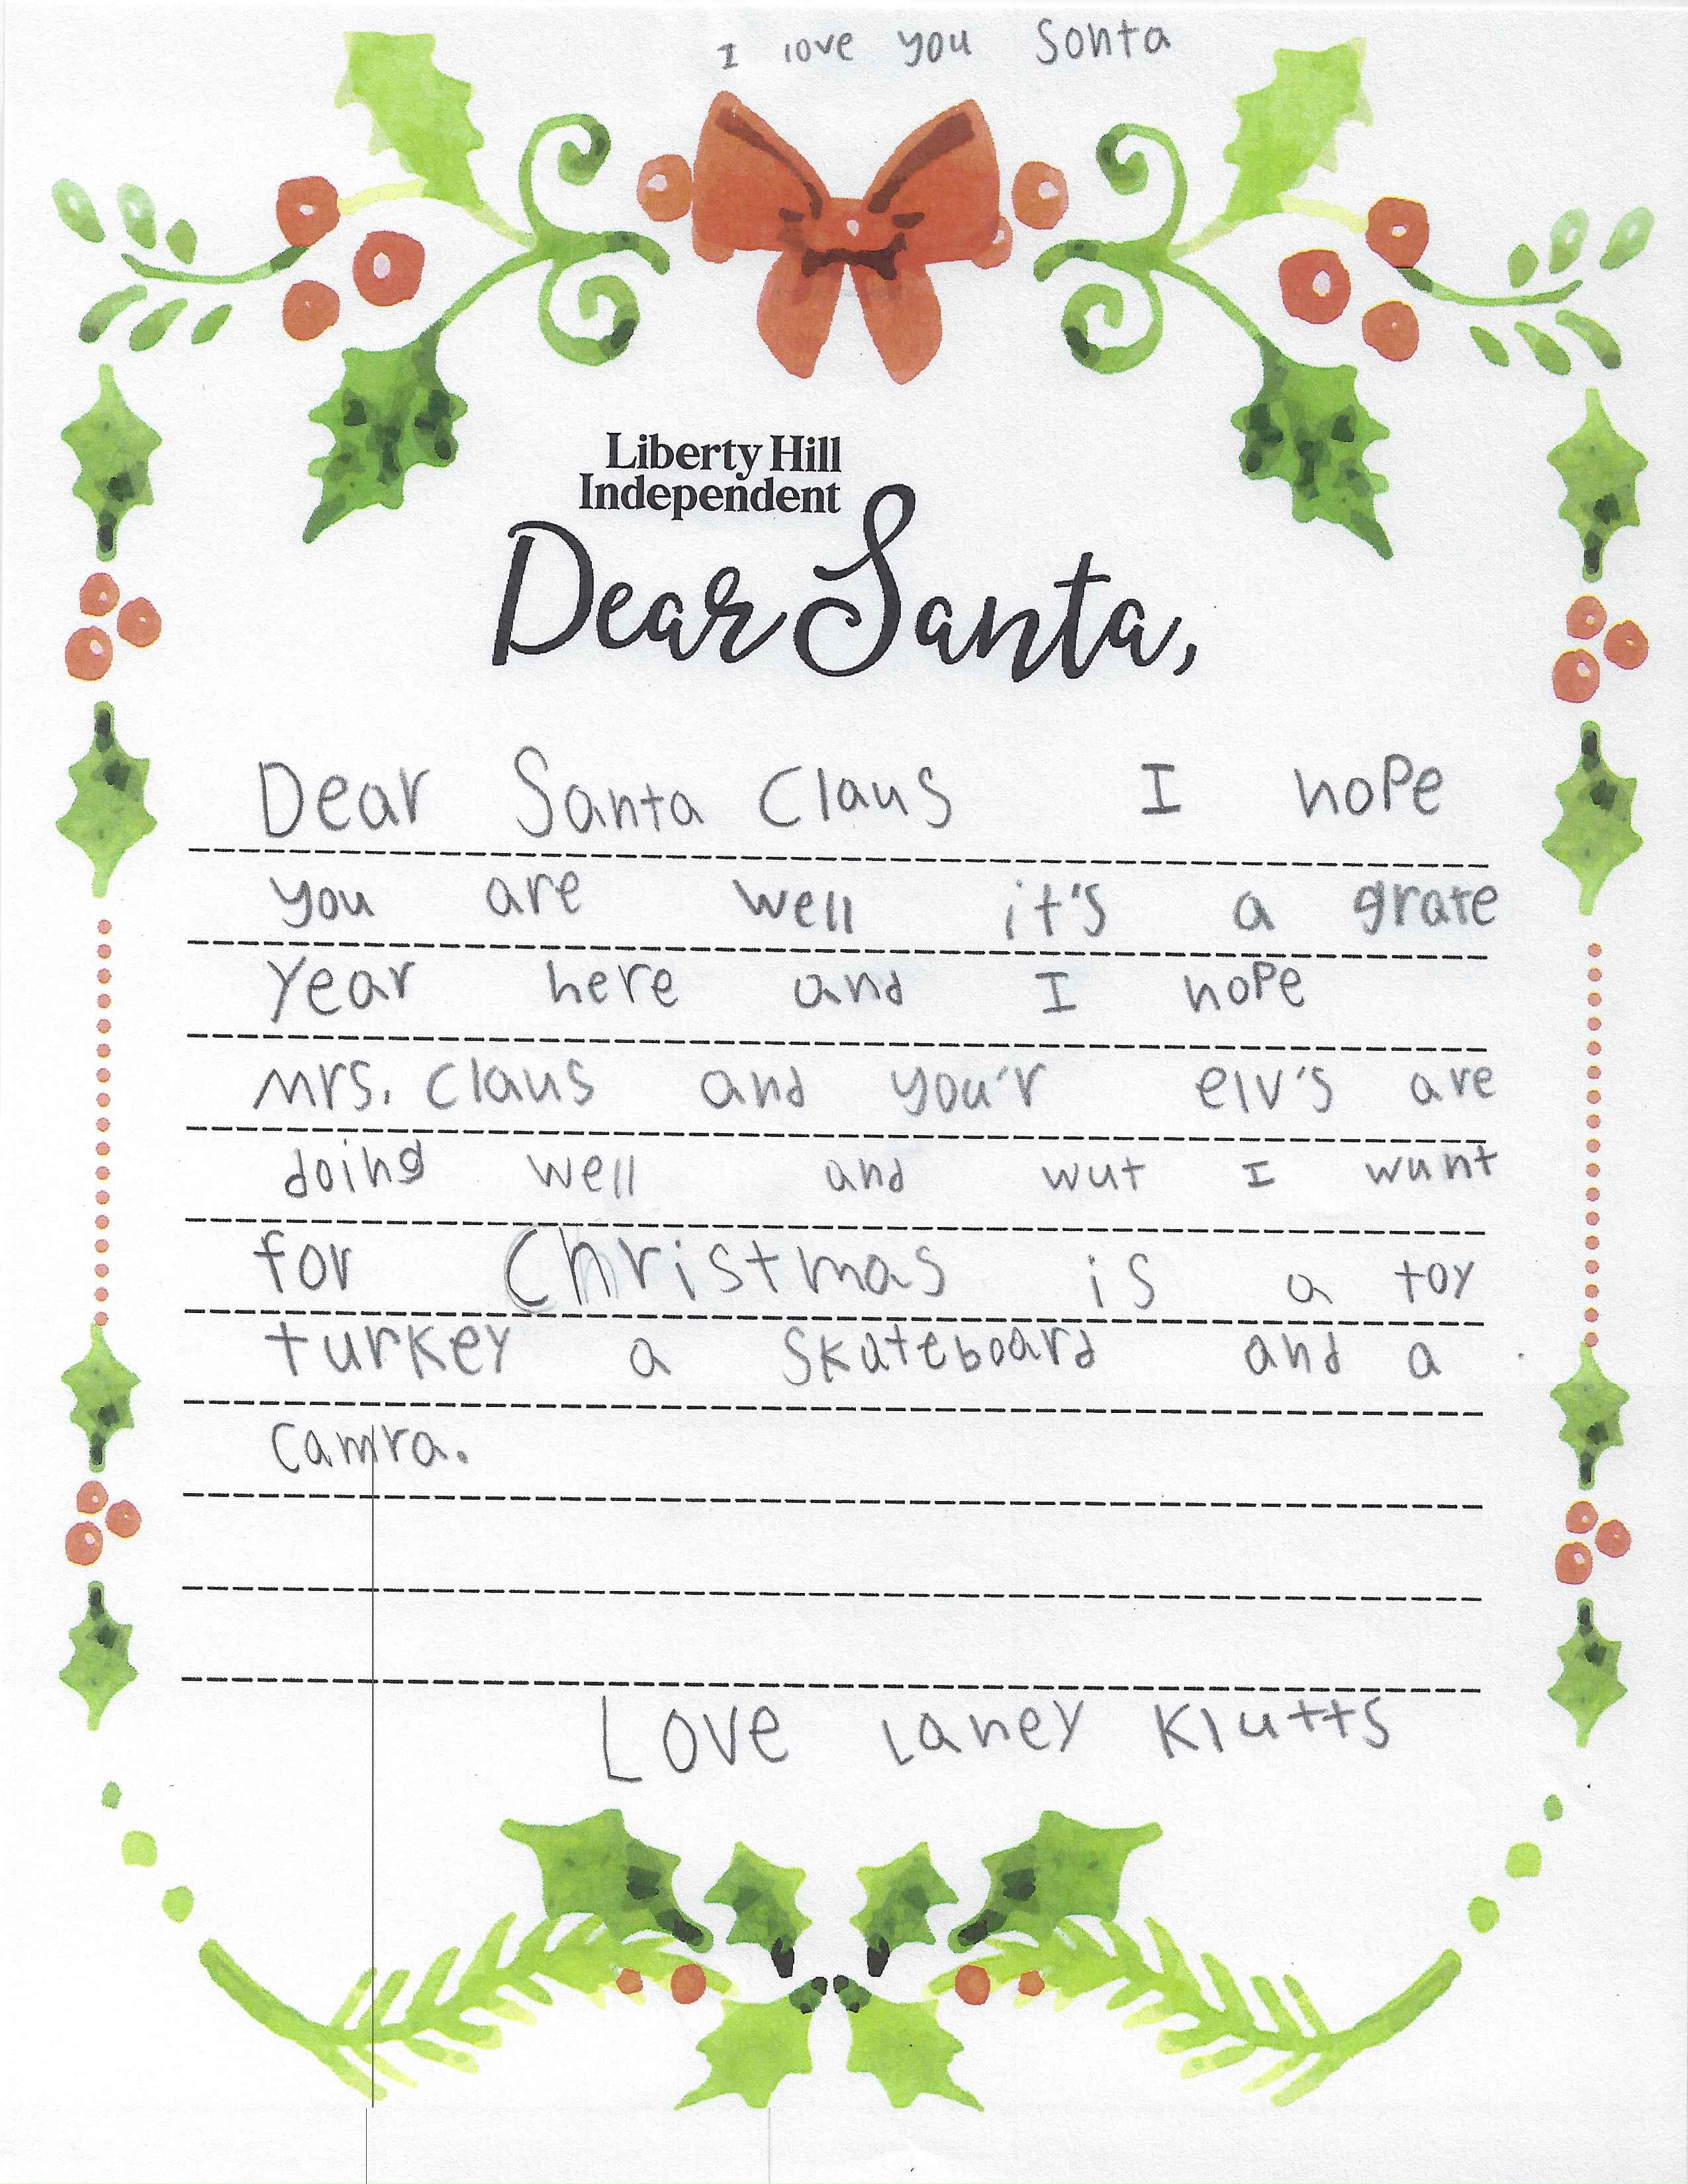 I love you Sonta
Liberty Hill
Independent
Dear Santa,
Dear Santa Claus I hope
you are well it's a grate
Year here and I hope
mrs. Claus and you'r elv's are
doing well and wut I wunt
for Christmas is a toy
turkey a skateboard and a
camra.
Love Laney Klutts